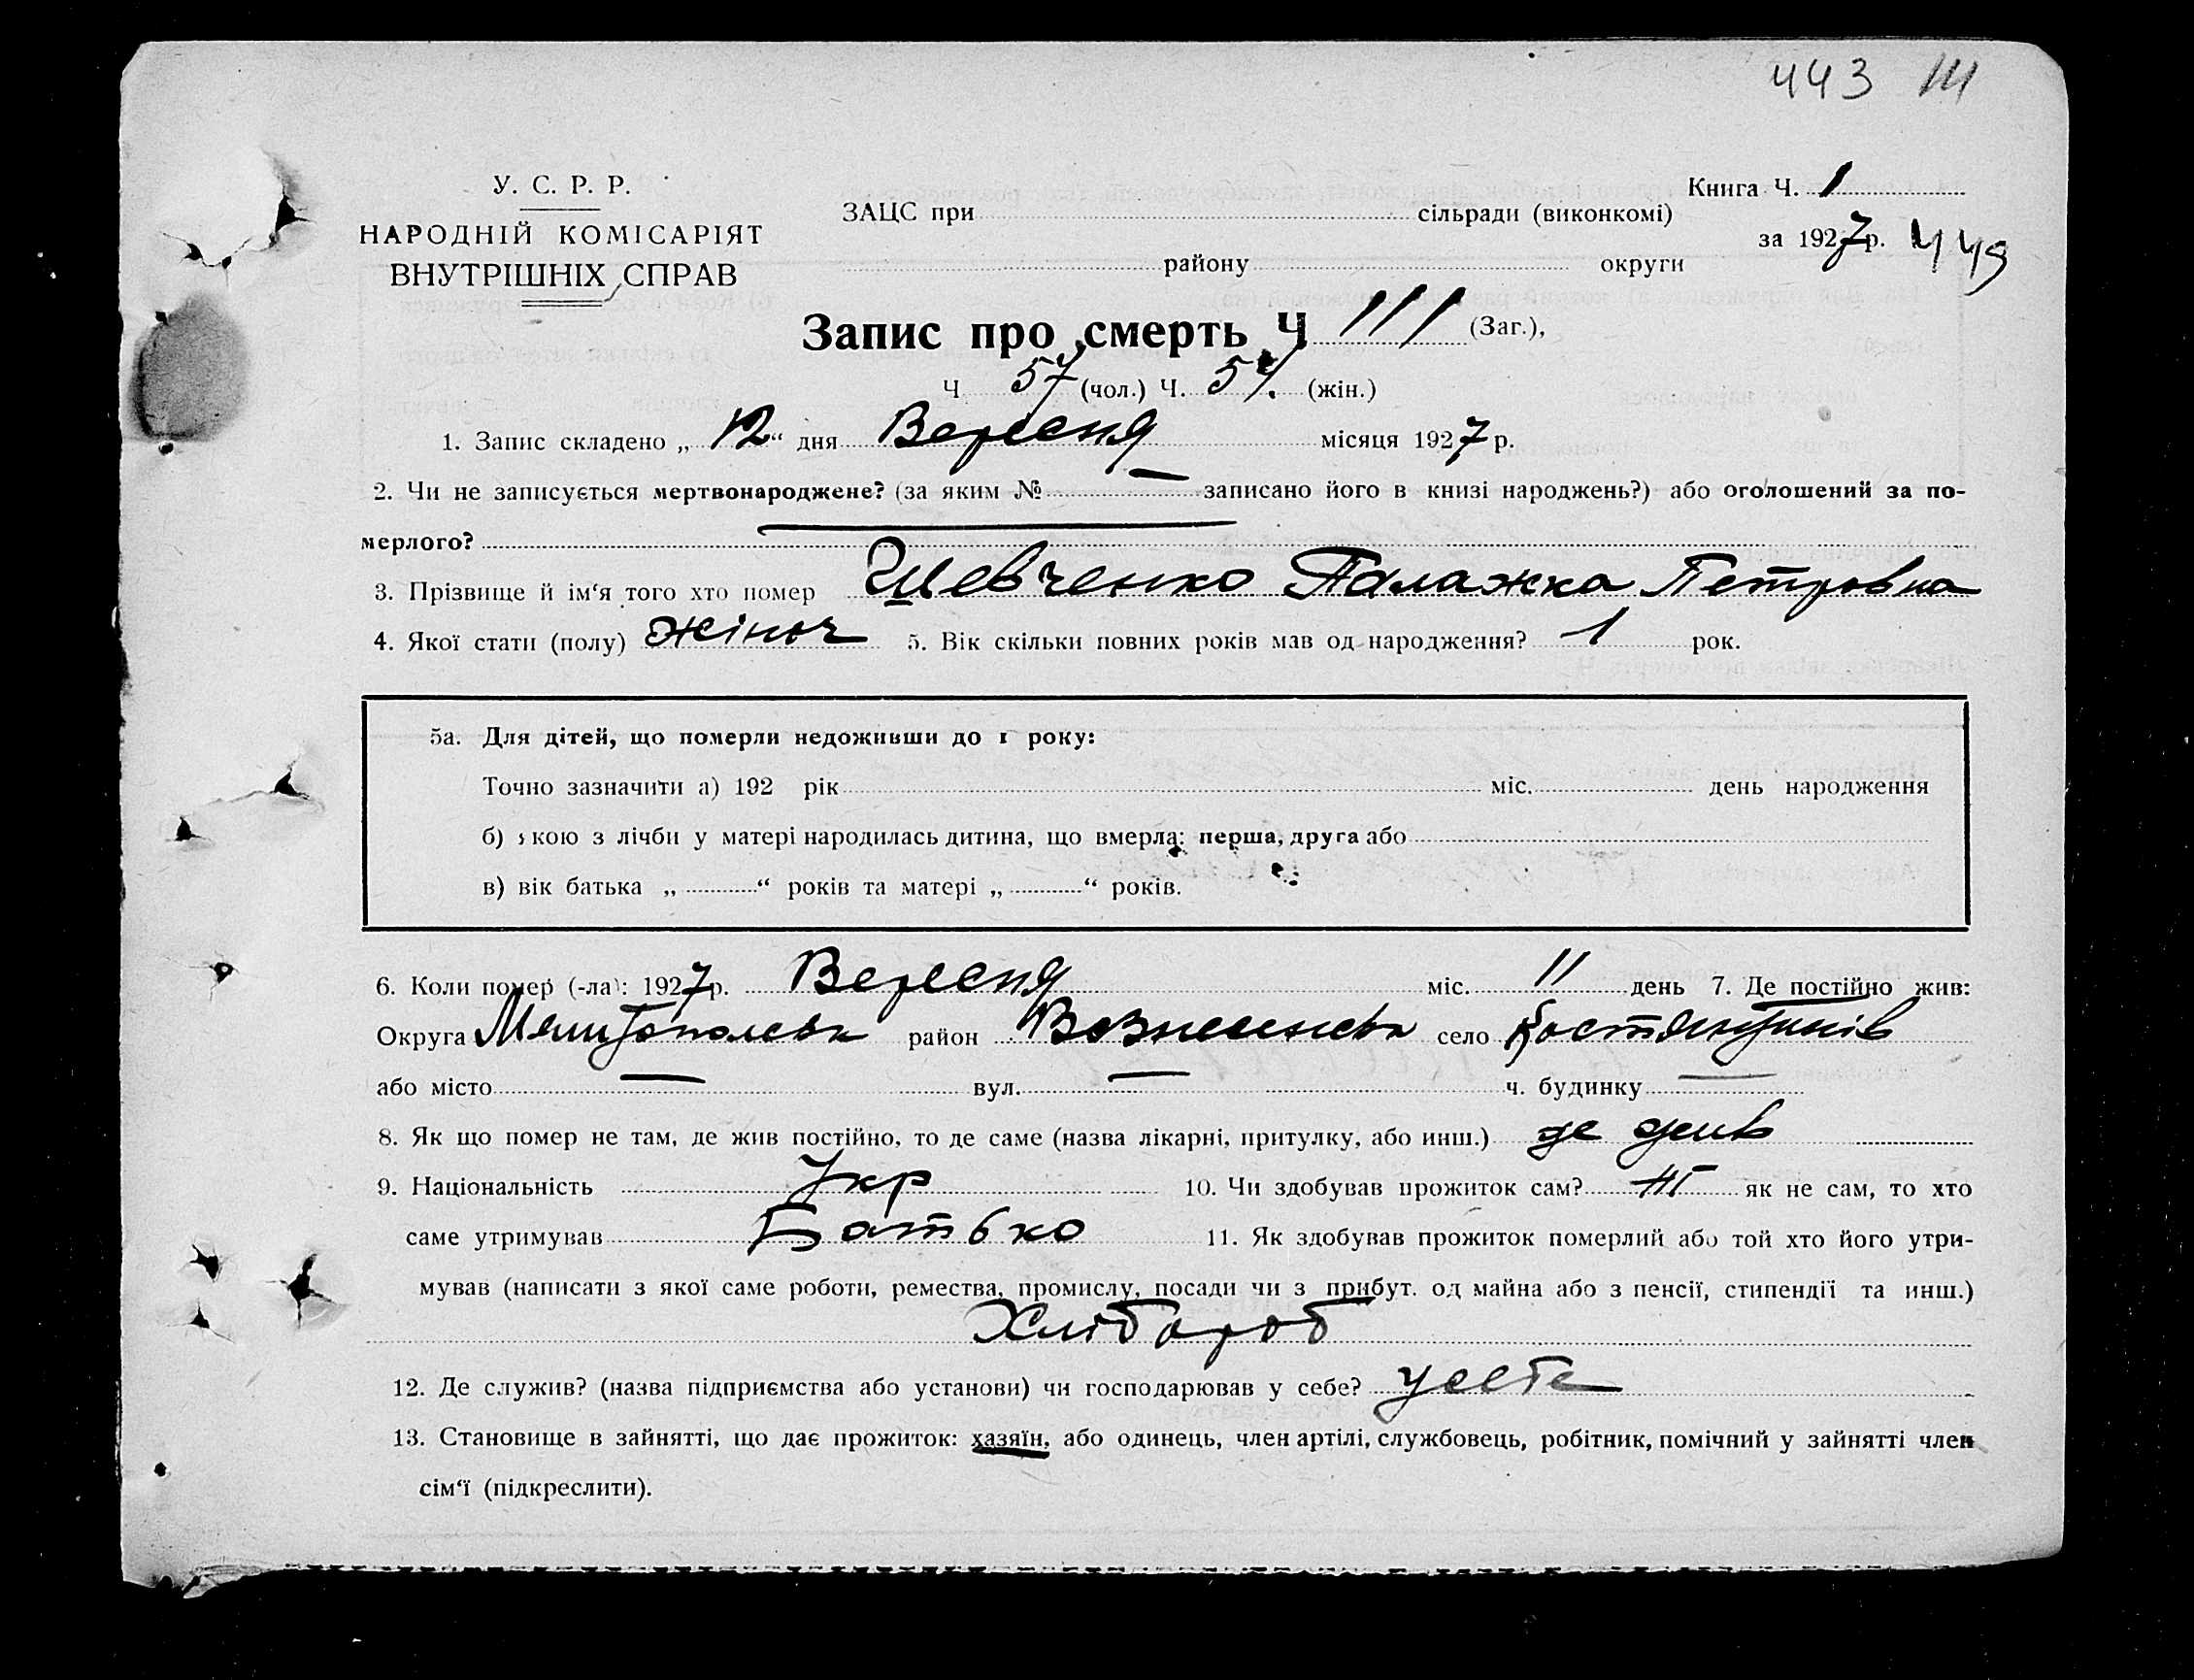 443 111
У. С. Р. Р.
НАРОДНІЙ КОМІСАРІЯТ
ВНУТРІШНІХ СПРАВ
Книга Ч. 1
ЗАЦС при сільради (виконкомі)
за 1927 р. 449
району округи
Запис про смерть Ч 111 (Заг.),
Ч 57 (чол.) Ч. 54. (жін.)
1. Запис складено „ 12 “ дня Вересня місяця 1927 р.
2. Чи не записується мертвонароджене? (за яким № — записано його в книзі народжень?) або оголошений за по-
мерлого?
3. Прізвище й ім‘я того хто помер Шевченко Палажка Петровна
4. Якої стати (полу) жіноч 5. Вік скільки повних років мав од народження? 1 рок.
5а. Для дітей, що померли недоживши до 1 року:
Точно зазначити а) 192 рік міс. день народження
б) якою з лічби у матері народилась дитина, що вмерла: перша, друга або
в) вік батька „ “ років та матері „ “ років.
6. Коли помер (-ла): 1927 р. Вересня міс. 11 день 7. Де постійно жив:
Округа Мелитопольськ район Вознесенськ село
або місто — вул. — ч. будинку —
8. Як що помер не там, де жив постійно, то де саме (назва лікарні, притулку, або инш.) де жив
9. Національність Укр 10. Чи здобував прожиток сам? ні як не сам, то хто
саме утримував Батько 11. Як здобував прожиток померлий або той хто його утри-
мував (написати з якої саме роботи, ремества, промислу, посади чи з прибут. од майна або з пенсії, стипендії та инш.)
Хлібороб
12. Де служив? (назва підприємства або установи) чи господарював у себе? у себе
13. Становище в зайнятті, що дає прожиток: хазяїн, або одинець, член артілі, службовець, робітник, помічний у зайнятті член
сім‘ї (підкреслити).